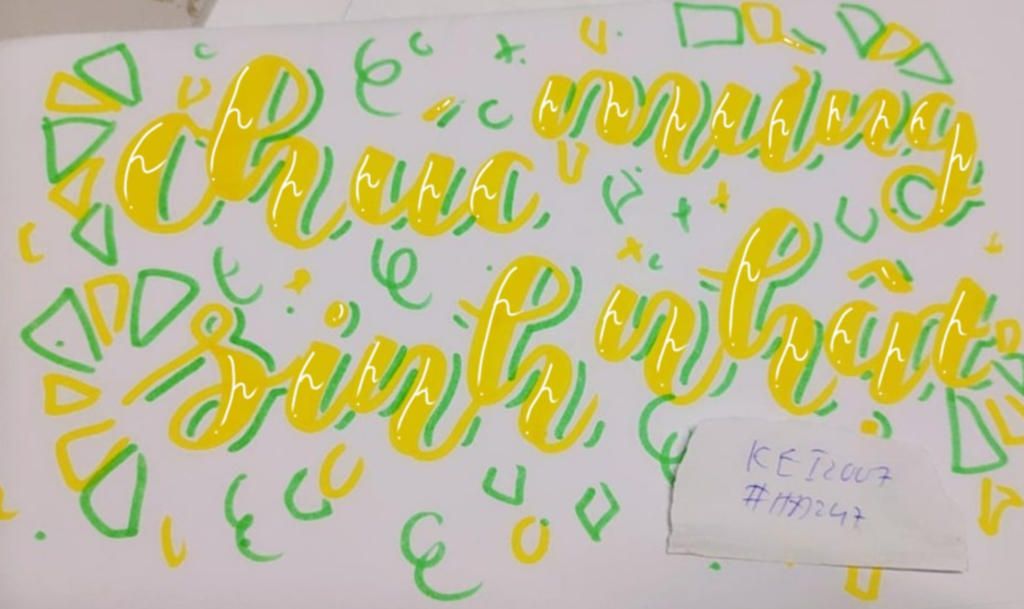 chúc mừng
sinh nhật
KEI2007
#HD247